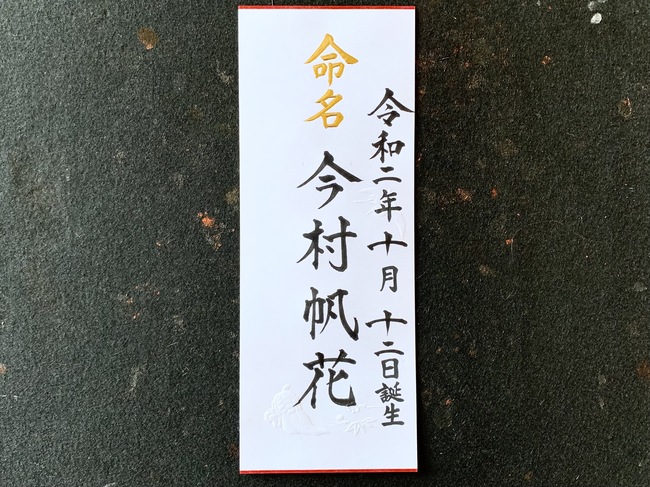 令和二年十月十二日誕生
命名
今村帆花